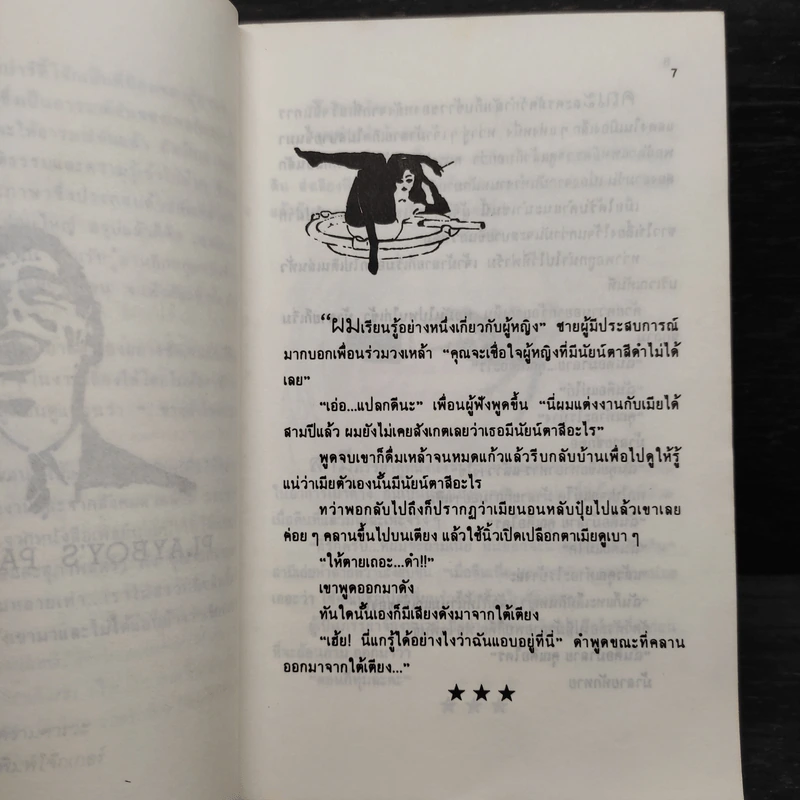 7
“ผมเรียนรู้อย่างหนึ่งเกี่ยวกับผู้หญิง” ชายผู้มีประสบการณ์
มากบอกเพื่อนร่วมวงเหล้า “คุณจะเชื่อใจผู้หญิงที่มีนัยน์ตาสีดำไม่ได้
เลย”
“เอ่อ...แปลกดีนะ” เพื่อนผู้ฟังพูดขึ้น “นี่ผมแต่งงานกับเมียได้
สามปีแล้ว ผมยังไม่เคยสังเกตเลยว่าเธอมีนัยน์ตาสีอะไร”
พูดจบเขาก็ดื่มเหล้าจนหมดแก้วแล้วรีบกลับบ้านเพื่อไปดูให้รู้
แน่ว่าเมียตัวเองนั้นมีนัยน์ตาสีอะไร
ทว่าพอกลับไปถึงก็ปรากฏว่าเมียนอนหลับปุ๋ยไปแล้วเขาเลย
ค่อย ๆ คลานขึ้นไปบนเตียง แล้วใช้นิ้วเปิดเปลือกตาเมียดูเบา ๆ
“ให้ตายเถอะ...ดำ!!”
เขาพูดออกมาดัง
ทันใดนั้นเองก็มีเสียงดังมาจากใต้เตียง
“เฮ้ย! นี่แกรู้ได้อย่างไงว่าฉันแอบอยู่ที่นี่” ดำพูดขณะที่คลาน
ออกมาจากใต้เตียง...”
★★★